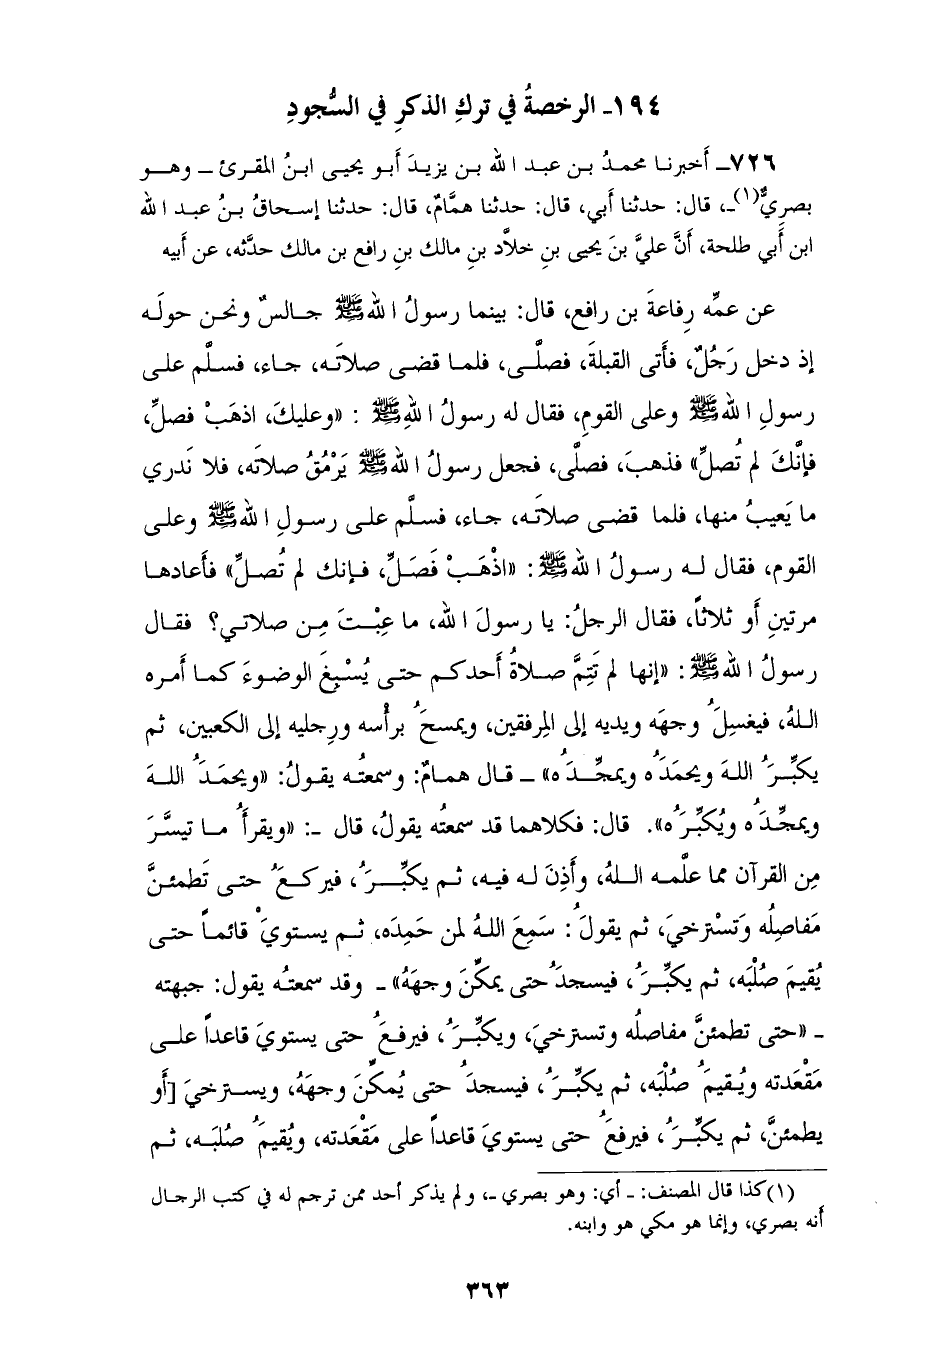 ١٩٤ـ الرخصةُ في تركِ الذكرِ في السُّجودِ
٧٢٦ـ أَخبرنا محمدُ بن عبد الله بن يزيدَ أَبو يحيى ابنُ المقرئ ـ وهو
بصريٌّ(١)ـ، قال: حدثنا أَبي، قال: حدثنا همَّامٌ، قال: حدثنا إسحاقُ بنُ عبد الله
ابن أَبي طلحة، أَنَّ عليَّ بنَ يحيى بنِ خلاَّد بنِ مالك بنِ رافع بن مالك حدَّثه، عن أَبيه
عن عمِّه رِفاعةَ بن رافع، قال: بينما رسولُ الله ﷺ جالسٌ ونحن حولَه
إذ دخل رَجُلٌ، فأَتى القبلةَ، فصلَّى، فلما قضى صلاتَه، جاء، فسلَّم على
رسولِ الله ﷺ وعلى القومِ، فقال له رسولُ اللهِ ﷺ : «وعليكَ، اذهَبْ فصلِّ،
فإنَّكَ لم تُصلِّ» فذهبَ، فصلَّى، فجعل رسولُ الله ﷺ يَرْمُقُ صلاتَه، فلا نَدري
ما يَعيبُ منها، فلما قضى صلاتَه، جاء، فسلَّم على رسولِ الله ﷺ وعلى
القومِ، فقال له رسولُ الله ﷺ : «اذْهَبْ فَصَلِّ، فإنك لم تُصلِّ» فأَعادها
مرتينِ أَو ثلاثاً، فقال الرجلُ: يا رسولَ الله، ما عِبْتَ مِن صلاتي؟ فقال
رسولُ الله ﷺ : «إنها لم تَتِمَّ صلاةُ أَحدكم حتى يُسْبِغَ الوضوءَ كما أَمره
اللهُ، فيغسلَُ وجهَه ويديه إلى المِرفقين، ويمسحَُ برأْسه ورِجليه إلى الكعبين، ثم
يكبِّرَُ اللهَ ويحمَدَُه ويمجِّدَُه» ـ قال همامٌ: وسمعتُه يقولُ: «ويحمَدَُ اللهَ
ويمجِّدَُه ويُكبِّرَُه». قال: فكلاهما قد سمعتُه يقولُ، قال ـ: «ويقرأَُ ما تيسَّرَ
مِن القرآن مما علَّمه اللهُ، وأَذِنَ له فيه، ثم يكبِّرَُ، فيركعَُ حتى تَطمئنَّ
مَفاصلُه وتَسْترخيَ، ثم يقولَُ : سَمِعَ اللهُ لمن حَمِدَه، ثم يستويَْ قائماً حتى
يُقيمَ صُلْبَه، ثم يكبِّرَُ، فيسجدَُ حتى يمكِّنَ وجهَهُ» ـ وقد سمعتُه يقول: جبهته
ـ «حتى تطمئنَّ مفاصلُه وتسترخيَ، ويكبِّرَُ، فيرفعَُ حتى يستويَ قاعداً على
مَقْعَدته ويُقيمَُ صُلْبَه، ثم يكبِّرَُ، فيسجدَُ حتى يُمكِّنَ وجهَهُ، ويسترخيَ [أَو
يطمئنَّ، ثم يكبِّرَُ، فيرفعَُ حتى يستويَ قاعداً على مَقْعَدته، ويُقيمَُ صُلبَه، ثم
(١) كذا قال المصنف: ـ أي: وهو بصري ـ، ولم يذكر أحد ممن ترجم له في كتب الرجال
أنه بصري، وإنما هو مكي هو وابنه.
٣٦٣